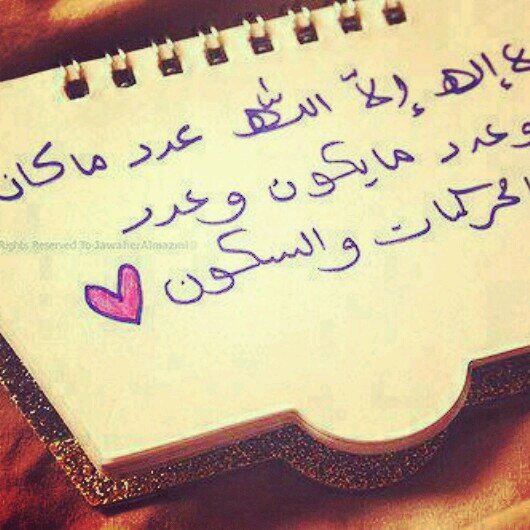 لا إله إلاّ الله عدد ما كان
وعدد مايكون وعدد
الحركات والسكون
Rights Reserved To JawaherAlmazmi